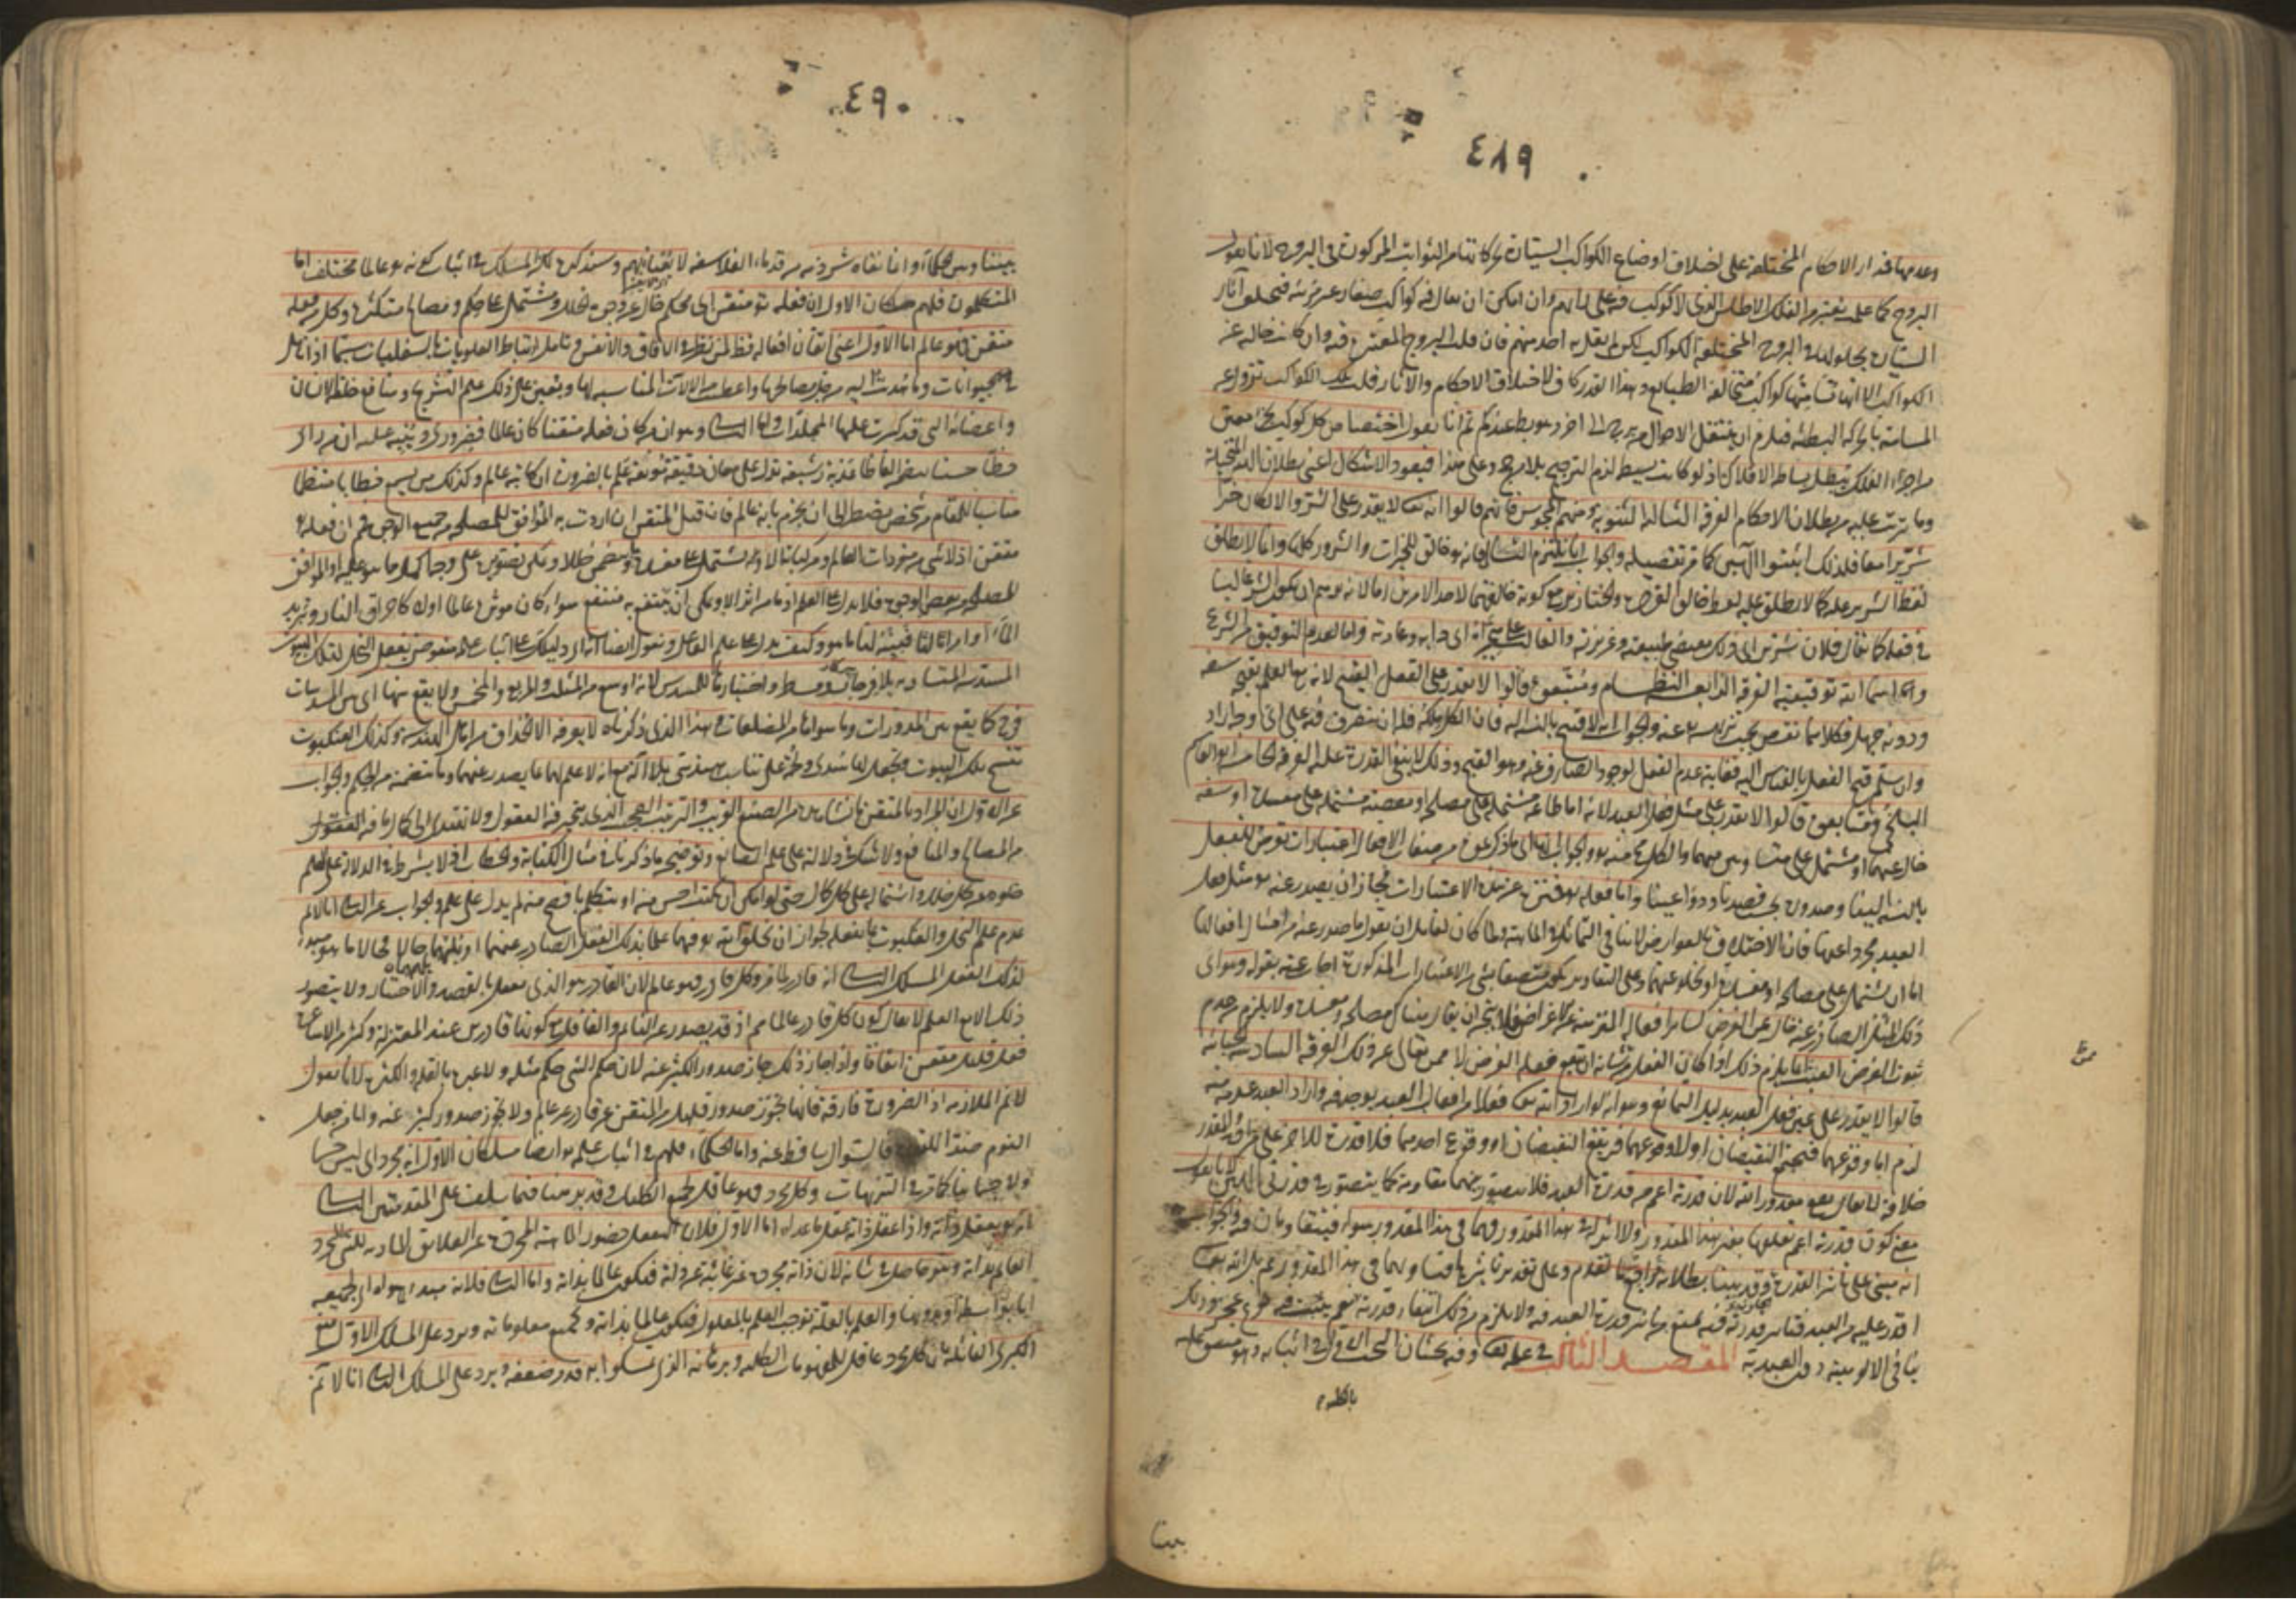 ٤٨٩
وعدمها فمدار الاحكام المختلفة على اختلاف اوضاع الكواكب السيارة بحركاتها من الثوابت المركوزة في البروج لانا نقول
البروج كما علمت تعتبر من الفلك الاطلس الذي لا كوكب فيه على رايهم وان امكن ان يقال فيه كواكب صغار غير مرئية فتختلف آثار
السيارة بحلولها في البروج المختلفة الكواكب لكن لم يقل به احد منهم فان قلت البروج المعتبرة فيه وان كانت خالية عنه
الكواكب الا انها تسامتها كواكب متخالفة الطبايع وهذا القدر كاف لاختلاف الاحكام والآثار قلت تلك الكواكب تزول عن
المسامتة بالحركة البطيئة فيلزم ان ينتقل الاحوال من برج الى اخر وهو باطل عندكم ثم انا نقول اختصاص كل كوكب بجزء معين
من اجزاء الفلك يبطل بساطة الافلاك اذ لو كانت بسيطة لزم الترجيح بلا مرجح وعلى هذا فيعود الاشكال اعني بطلان الهيئة
وما ترتب عليه من بطلان الاحكام الفرقة الثالثة الثنوية ومنهم المجوس فانهم قالوا انه تعالى لا يقدر على الشر والا لكان خيرا
شريرا معا فلذلك اثبتوا الهين كما مر تفصيله والجواب انا نلتزم التالي فانه خالق للخيرات والشرور كلها وانما لا يطلق
لفظ الشرير عليه كما لا يطلق عليه لفظ خالق القردة والخنازير مع كونه خالقهما لاحد الامرين اما لانه يوهم ان يكون الشر غالبا
في فعله كما يقال فلان شرير اي ذلك مقتضى طبيعته وغريزته والغالب على هجيراه اي دابه وعادته واما لعدم التوقيف من الشرع
واسماء الله توقيفية الفرقة الرابعة النظام ومتبعوه قالوا لا يقدر على الفعل القبيح لانه مع العلم بقبحه سفه
ودونه جهل وكلاهما نقص يجب تنزيهه تعالى عنه والجواب انه لا قبيح بالنسبة اليه فان الكل ملكه فله ان يتصرف فيه على اي وجه اراد
وان سلم قبح الفعل بالقياس اليه فغايته عدم الفعل لوجود الصارف عنه وهو القبح وذلك لا ينفي القدرة عليه الفرقة الخامسة ابو القاسم
البلخي ومتابعوه قالوا لا يقدر على مثل فعل العبد لانه اما طاعة مشتملة على مصلحة او معصية مشتملة على مفسدة او سفه
خال عنهما او مشتمل على متساويين منهما والكل محال منه تعالى والجواب انها اي ما ذكرتموه من صفات الافعال اعتبارات تعرض للفعل
بالنسبة الينا وصدوره بحسب قصدنا ودواعينا واما فعله تعالى فمنزه عن هذه الاعتبارات فجاز ان يصدر عنه تعالى مثل فعل
العبد مجردا عنها فان الاختلاف بالعوارض لا ينافي التماثل في الماهية ولما كان لقائل ان يقول ما صدر عنه من امثال افعالنا
اما ان يشتمل على مصلحة او مفسدة او يخلو عنهما وعلى التقادير يكون متصفا بشيء من الاعتبارات المذكورة اجاب عنه بقوله وهو اي
ذلك المثل الصادر عنه خال عن الغرض كسائر افعاله المنزهة عن الاغراض فلا يتجه ان يقال هناك مصلحة ومفسدة ولا يلزم من عدم
ثبوت الغرض العبث انما يلزم ذلك اذا كان الفعل من شانه ان يتبع فعله الغرض لا ممن تعالى عن ذلك الفرقة السادسة الجبائية
قالوا لا يقدر على عين فعل العبد بدليل التمانع وهو انه لو اراد الله تعالى فعلا من افعال العبد يوجد فيه واراد العبد عدمه منه
لزم اما وقوعهما فيجتمع النقيضان او لا وقوعهما فيرتفع النقيضان او وقوع احدهما فلا قدرة للاخر على مراده والمقدر
خلافه لا يقال يقع مقدور الله لان قدرته اعم من قدرة العبد فلا يتصور بينهما مقاومة كما يتصور في قدرتي الهين لانا نقول
معنى كون قدرته اعم تعلقها بغير هذا المقدور ولا اثر له في هذا المقدور فهما في هذا المقدور سواء فيتقاومان فيه والجواب
انه مبني على تاثير القدرة وقد بينا بطلانه فيما تقدم وعلى تقدير تاثيرها فتساويهما في هذا المقدور ممنوع بل الله تعالى
اقدر عليه من العبد فتاثير قدرته فيه يمنع من تاثير قدرة العبد فيه ولا يلزم من ذلك انتفاء قدرته نعم يثبت فيه نوع عجز وذلك
ينافي الالوهية دون العبدية المقصد الثالث في علمه تعالى وفيه بحثان البحث الاول في اثباته وهو متفق عليه
بيننا
٤٩٠
بيننا وبين الحكماء وانما نفاه شرذمة من قدماء الفلاسفة لا يعبأ بهم وسنذكره لكن المسلك في اثبات كونه تعالى عالما مختلف اما
المتكلمون فلهم مسلكان الاول ان فعله تعالى متقن اي محكم خال عن وجوه الخلل ومشتمل على حكم ومصالح متكثرة وكل من فعله
متقن فهو عالم اما الاول اعني اتقان افعاله فظاهر لمن نظر في الآفاق والانفس وتامل ارتباط العلويات بالسفليات سيما اذا تامل
في الحيوانات وما هديت اليه من مصالحها واعطيت من الآلات المناسبة لها ويعين على ذلك علم التشريح ومنافع خلقة الانسان
واعضائه التي قد كسرت عليها المجلدات واما الثاني وهو ان من كان فعله متقنا كان عالما فضروري وينبه عليه ان من راى
خطا حسنا يتضمن الفاظا عذبة رشيقة تدل على معان دقيقة مونقة علم بالضرورة ان كاتبه عالم وكذلك من سمع خطابا منتظما
مناسبا للمقام من شخص يضطر الى ان يجزم بانه عالم فان قيل المتقن ان اردت به الموافق للمصلحة من جميع الوجوه فمنع ان فعله تعالى
متقن اذ لا شيء من مفردات العالم ومركباته الا وهو يشتمل على مفسدة ما ويتضمن خللا ويمكن تصويره على وجه اكمل مما هو عليه او الموافق
للمصلحة من بعض الوجوه فلا يدل على العلم اذ ما من اثر الا ويمكن ان ينتفع به منتفع سواء كان موثره عالما اولا كاحراق النار وتبريد
الماء او امرا ثالثا فبينه لنا ما هو وكيف يدل على علم الفاعل ونقول ايضا انه اي دليلك على اثبات علمه منقوض بفعل النحل لتلك البيوت
المسدسة المتساوية بلا فرجار ومسطر واختيارها للمسدس لانه اوسع من المثلث والمربع والمخمس ولا يقع بينها اي بين المسدسات
فرج كما يقع بين المدورات وما سواها من المضلعات وهذا الذي ذكرناه لا يعرفه الا الحذاق من اهل الهندسة وكذلك العنكبوت
تنسج تلك البيوت وتجعل لها سدى ولحمة على تناسب هندسي بلا آلة مع انه لا علم لهما بما يصدر عنهما وما يتضمنه من الحكم والجواب
عن الاول ان المراد بالمتقن ما نشاهده من الصنع الغريب والترتيب العجيب الذي يتحير فيه العقول ولا تهتدي الى كمال ما فيه
من المصالح والمنافع ولا شك في دلالته على علم الصانع وتوضيحه ما ذكرناه في مثال الكتابة والخطاب اذ لا يشترط في الدلالة على العلم
خلوه عن كل خلل واشتماله على كل كمال حتى لو امكن ان يكتب احسن منه او يتكلم بافصح منه لم يدل على علم والجواب عن الثاني انا لا نم
عدم علم النحل والعنكبوت بما يفعله لجواز ان يخلق الله تعالى فيهما علما بذلك الفعل الصادر عنهما او يلهمهما حالا فحالا ما هو مبدء
لذلك الفعل المسلك الثاني انه قادر لما مر وكل قادر فهو عالم لان القادر هو الذي يفعل بالقصد والاختيار ولا يتصور
ذلك الا مع العلم لا يقال كون كل قادر عالما ممنوع اذ قد يصدر عن النائم والغافل مع كونهما قادرين عند المعتزلة وكثير من الاشاعرة
فعل قليل متقن اتفاقا واذا جاز ذلك جاز صدور الكثير عنه لان حكم الشيء حكم مثله ولا عبرة بالقلة والكثرة لانا نقول
لا نم الملازمة اذ الضرورة فارقة فانها تجوز صدور قليل من المتقن عن قادر غير عالم ولا تجوز صدور كثير عنه واما من جعل
النوم ضدا للقدرة فالسوال ساقط عنه واما الحكماء فلهم في اثبات علمه تعالى ايضا مسلكان الاول انه مجرد اي ليس جسما
ولا جسمانيا كما مر في التنزيهات وكل مجرد فهو عاقل لجميع الكليات وقد برهنا فيما سلف على المقدمتين الثاني
انه تعالى يعقل ذاته واذا عقل ذاته عقل ما عداه اما الاول فلان التعقل حضور الماهية المجردة عن العلائق المادية للشيء المجرد
القائم بذاته وهو حاصل في شانه لان ذاته مجردة غير غائبة عن ذاته فيكون عالما بذاته واما الثاني فلانه مبدء لما سواه اي لجميعه
اما بواسطة او بدونها والعلم بالعلة يوجب العلم بالمعلول فيكون عالما بذاته وبجميع معلوماته ويرد على المسلك الاول منع
الكبرى القائلة بان كل مجرد عاقل للمفهومات الكلية وبرهانه الذي تمسكوا به قد مر ضعفه ويرد على المسلك الثاني انا لا نم